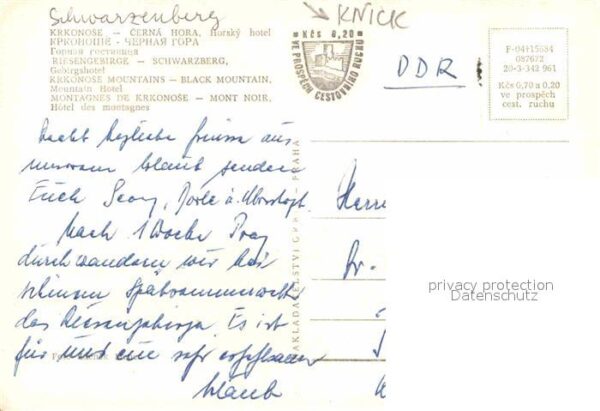 Schwarzenberg
KNICK
KRKONOŠE — ČERNÁ HORA, Horský hotel
КРКОНОШЕ - ЧЕРНАЯ ГОРА
Горная гостиница
RIESENGEBIRGE — SCHWARZBERG,
Gebirgshotel
KRKONOŠE MOUNTAINS — BLACK MOUNTAIN,
Mountain Hotel
MONTAGNES DE KRKONOŠE — MONT NOIR,
Hôtel des montagnes
Kčs 0,20
VE PROSPĚCH CESTOVNÍHO RUCHU
DDR
F-04115684
087672
20-3-342 961
Kčs 0,70 a 0,20
ve prospěch
cest. ruchu
Recht herzliche Grüsse aus
unserem Urlaub senden
Euch
Nach 1 Woche Prag
durchwandern wir bei
schönem Spätsommerwett
das Riesengebirge. Es ist
für uns ein sehr erholsamer
Urlaub
NAKLADATELSTVÍ PRAHA
Herrn
Dr.
privacy protection
Datenschutz